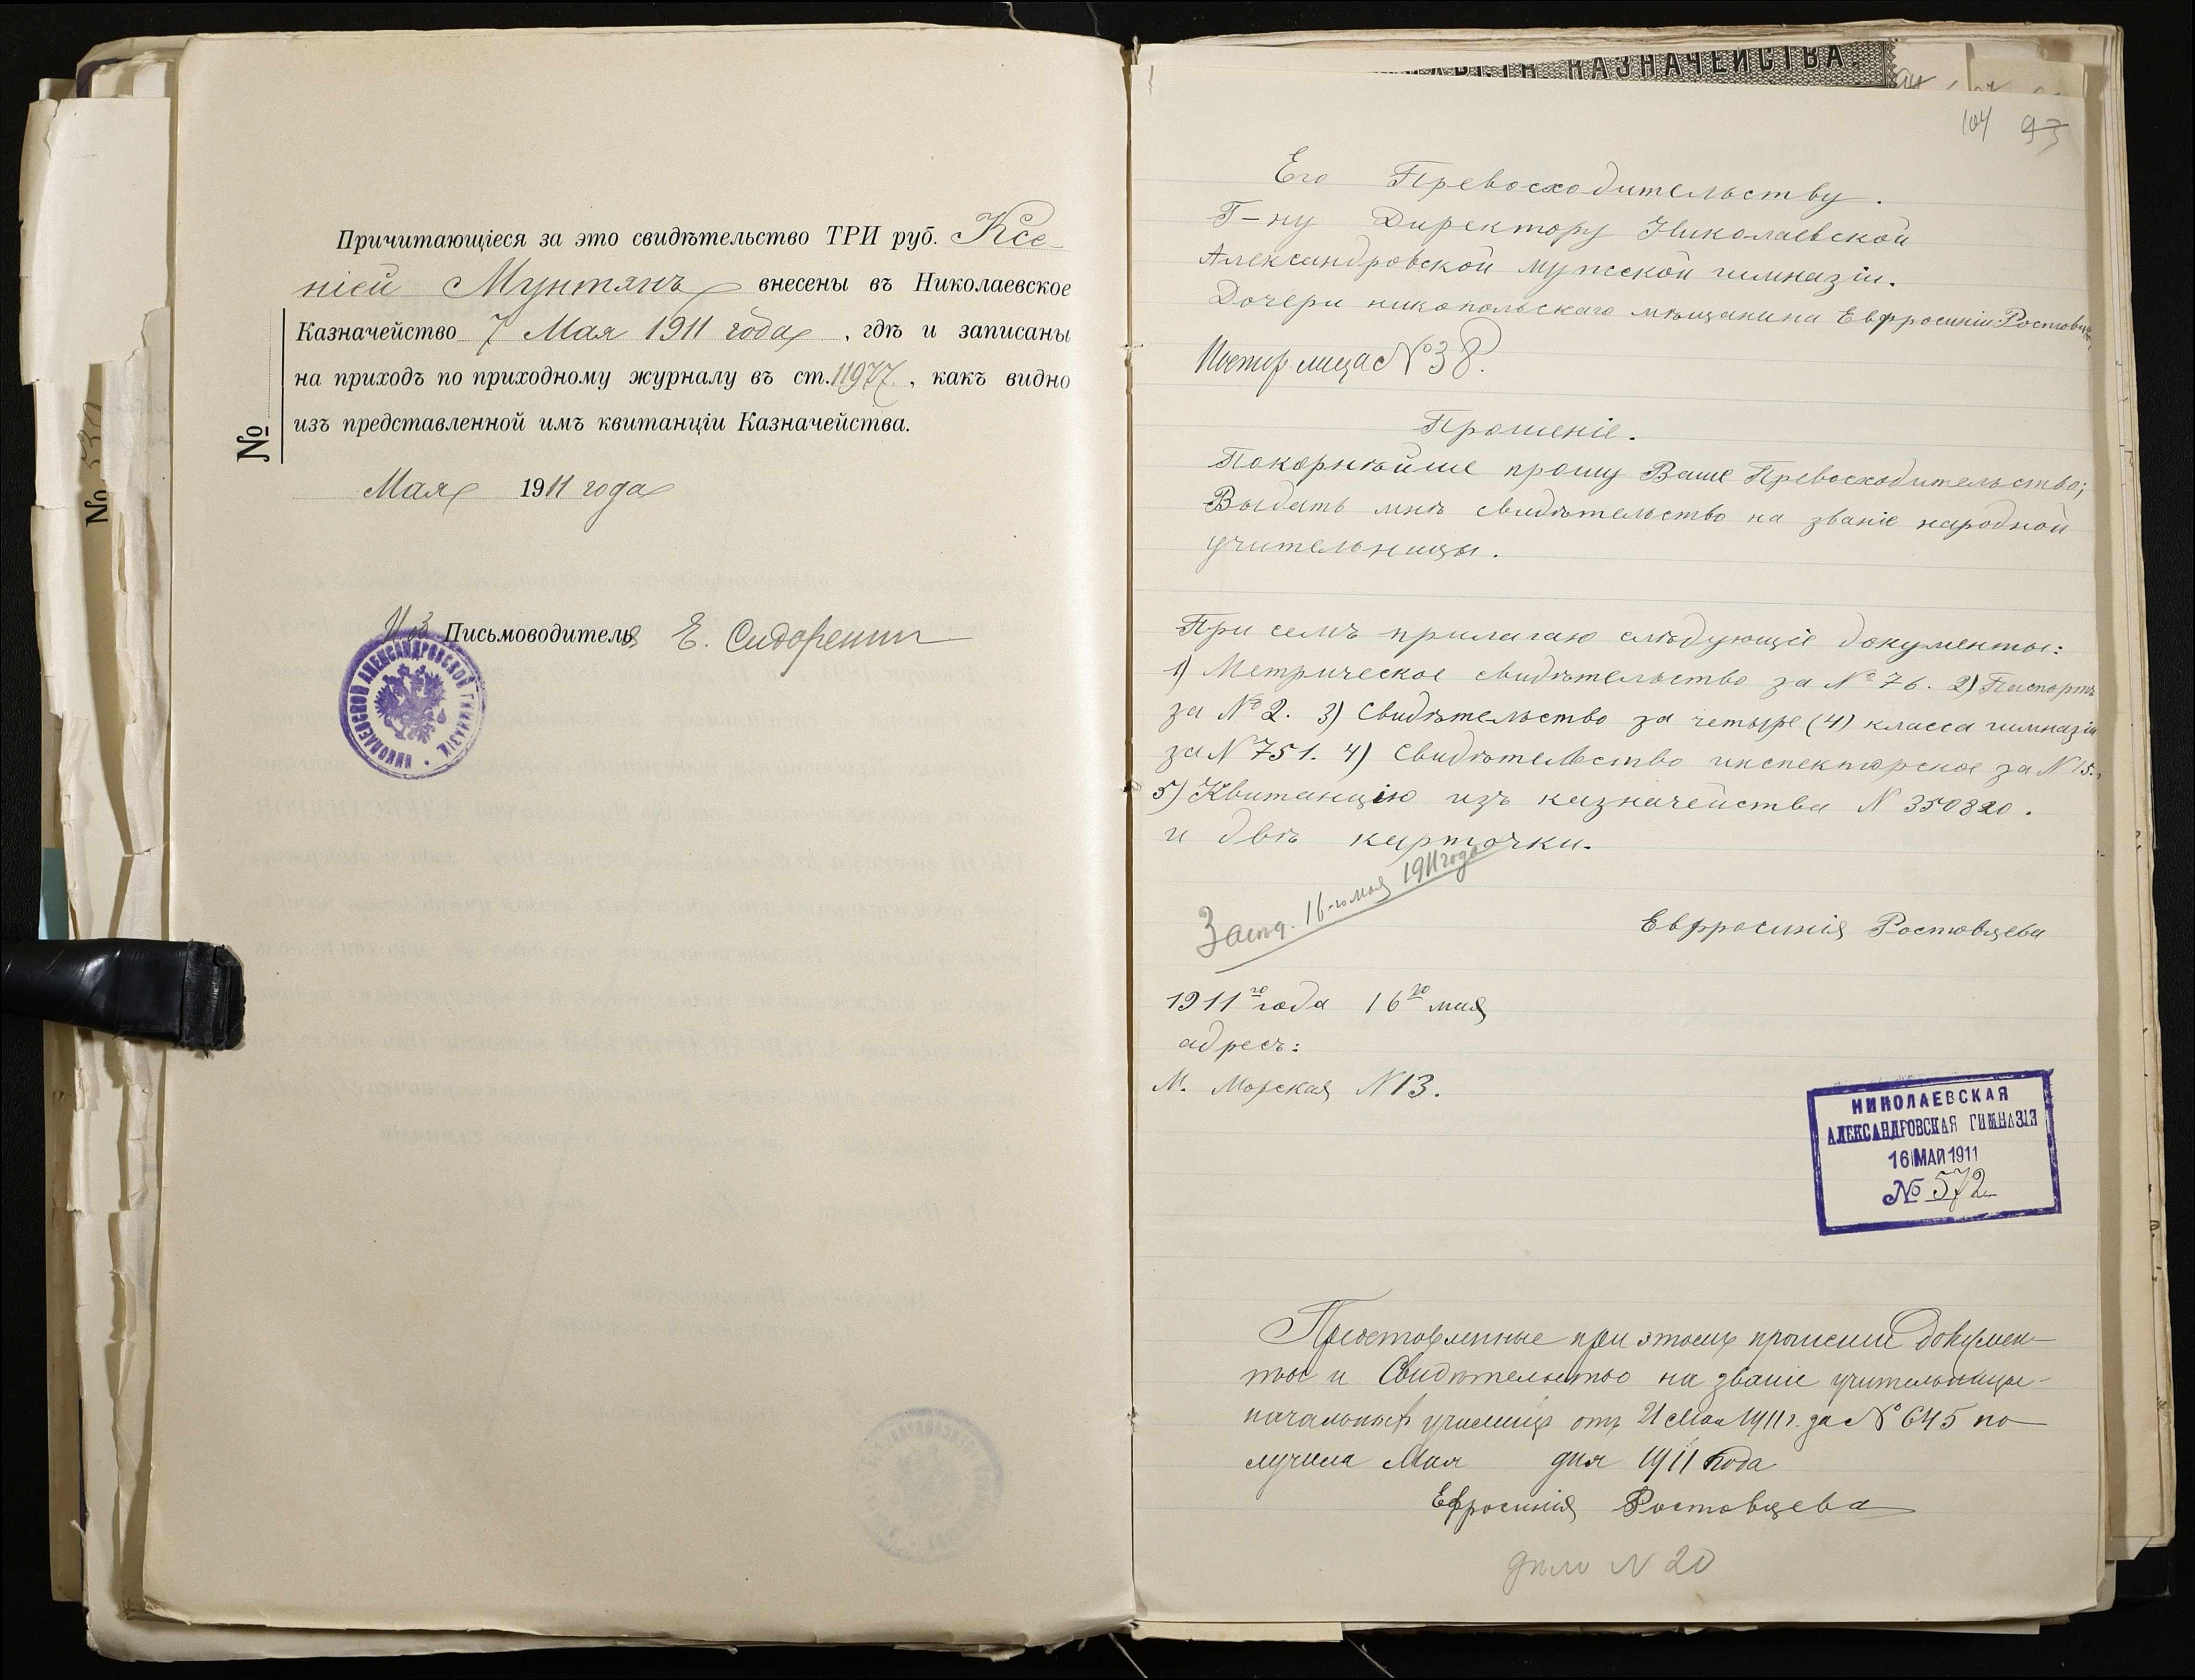 Причитающіеся за это свидѣтельство ТРИ руб. Ксе-
ніей Мунтянъ внесены въ Николаевское
Казначейство 7 Мая 1911 года, гдѣ и записаны
на приходъ по приходному журналу въ ст. 11977, какъ видно
изъ представленной имъ квитанціи Казначейства.
№
№ 530
Мая 1911 года
И з Письмоводителя Е. Сидоренко
НИКОЛАЕВСКОЙ АЛЕКСАНДРОВСКОЙ ГИМНАЗІИ
КАЗНАЧЕЙСТВА.
104 93
Его Превосходительству.
Г-ну Директору Николаевской
Александровской мужской гимназіи.
Дочери никопольскаго мѣщанина Евфросиніи Ростовцевой
№ 38.
Прошеніе.
Покорнѣйше прошу Ваше Превосходительство;
Выдать мнѣ свидѣтельство на званіе народной
учительницы.
При семъ прилагаю слѣдующіе документы:
1) Метрическое свидѣтельство за № 76. 2) Паспортъ
за № 2. 3) Свидѣтельство за четыре (4) класса гимназіи
за N 751. 4) Свидѣтельство инспекторское за N 15.
5) Квитанцію изъ казначейства N 350820.
и двѣ карточки.
16-го мая 1911 года
Евфросинія Ростовцева
1911го года 16го мая
адресъ:
М. Морская N 13.
НИКОЛАЕВСКАЯ
АЛЕКСАНДРОВСКАЯ ГИМНАЗІЯ
16 МАЯ 1911
№ 572
Представленные при этомъ прошеніи докумен-
ты и Свидѣтельство на званіе учительницы
начальныхъ училищъ отъ 21 Мая 1911 г. за № 645 по-
лучила Мая дня 1911 года
Ефросинія Ростовцева
дѣло N 20